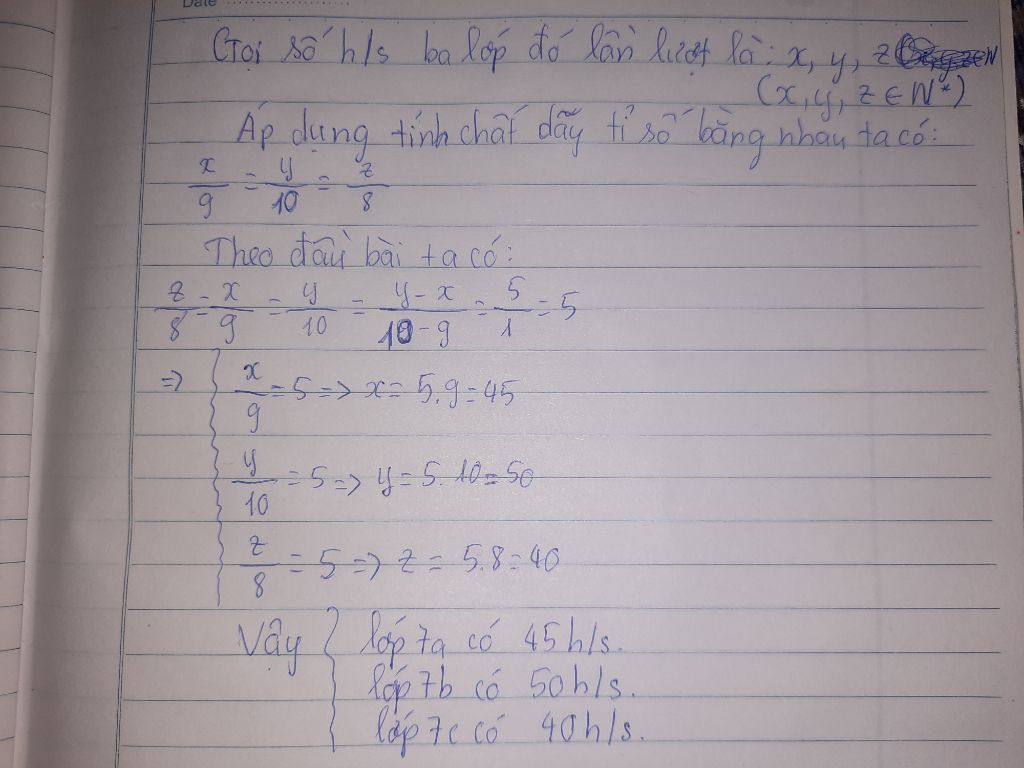 Date
Gọi số h/s ba lớp đó lần lượt là: x, y, z
(x, y, z ∈ N*)
Áp dụng tính chất dãy tỉ số bằng nhau ta có:
x/9 = y/10 = z/8
Theo đầu bài ta có:
z/8 = x/9 = y/10 = y-x/10-9 = 5/1 = 5
=> { x/9 = 5 => x = 5.9 = 45
y/10 = 5 => y = 5.10 = 50
z/8 = 5 => z = 5.8 = 40
Vậy { lớp 7a có 45 h/s.
lớp 7b có 50 h/s.
lớp 7c có 40 h/s.